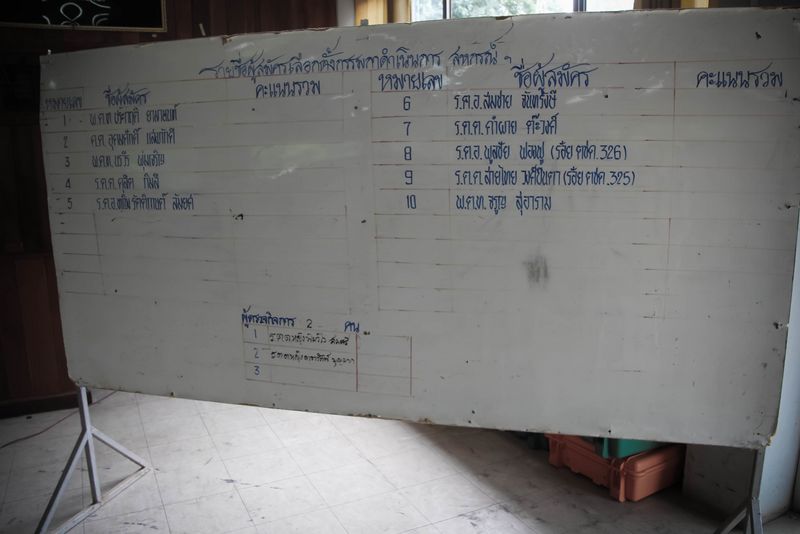 รายชื่อผู้สมัครเลือกตั้งกรรมการดำเนินการ สหกรณ์ ฯ
หมายเลข ชื่อผู้สมัคร คะแนนรวม
1
2 ด.ต. อุดมศักดิ์ แสนภักดี
3 พ.ต.ท.
4 ร.ต.ต. ดุสิต
5 ร.ต.อ.
หมายเลข ชื่อผู้สมัคร คะแนนรวม
6 ร.ต.อ. สมชาย จันทรังษี
7 ร.ต.ต. คำผาย ต๊ะวงศ์
8 ร.ต.อ. พูลชัย ฟองฟู (ร้อย ตชด.326)
9 ร.ต.ต. สายไทย วงศ์ขันตา (ร้อย ตชด.325)
10 พ.ต.ท. จรูญ สุอาราม
ผู้ตรวจกิจการ 2 คน
1 ร.ต.ต.หญิง
2 ร.ต.ต.หญิง
3